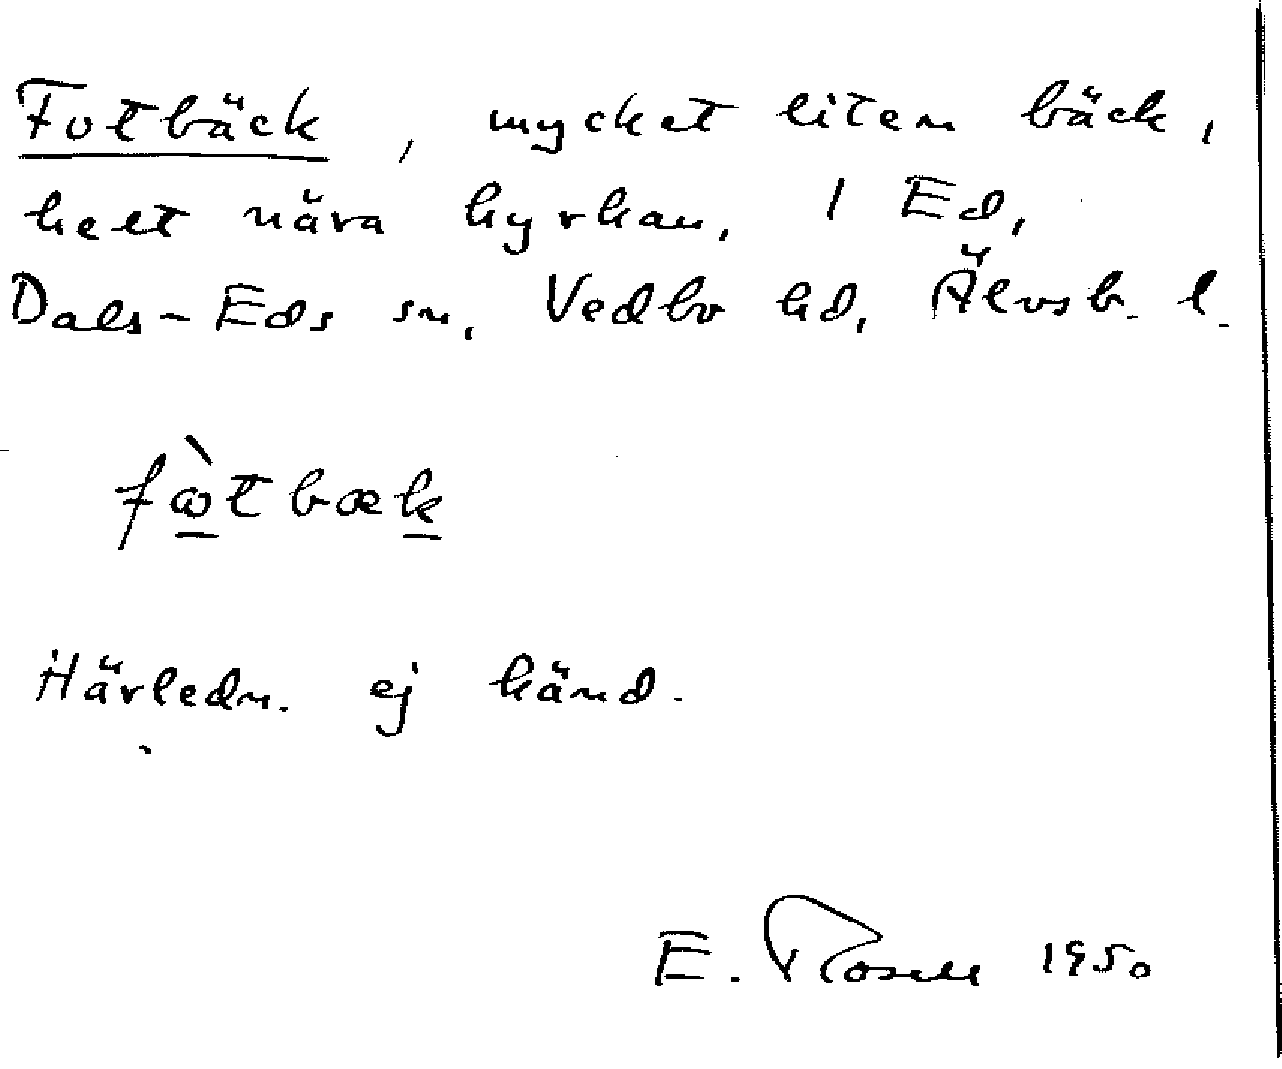 Fotbäck, mycket liten bäck,
helt nära kyrkan, i Ed,
Dals-Eds sn, Vedbo hd, Älvsb. l.
fὼtbæk
Härledn. ej känd.
E. Rosell 1950